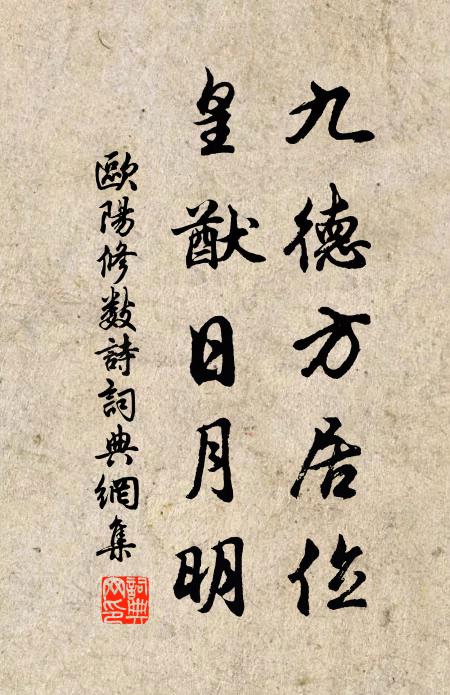 九德方居位
皇猷日月明
歐陽修數詩詞典網集
詞典網印